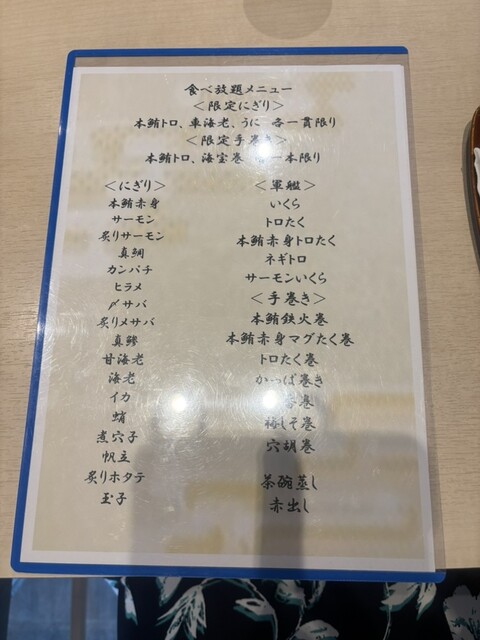 食べ放題メニュー
<限定にぎり>
本鮪トロ、車海老、うに 各一貫限り
<限定手巻き>
本鮪トロ、海宝巻 一本限り
<にぎり>
本鮪赤身
サーモン
炙りサーモン
真鯛
カンパチ
ヒラメ
〆サバ
炙り〆サバ
真鯵
甘海老
海老
イカ
蛸
煮穴子
帆立
炙りホタテ
玉子
<軍艦>
いくら
トロたく
本鮪赤身トロたく
ネギトロ
サーモンいくら
<手巻き>
本鮪鉄火巻
本鮪赤身マグたく巻
トロたく巻
かっぱ巻き
巻
梅しそ巻
穴胡巻
茶碗蒸し
赤出し